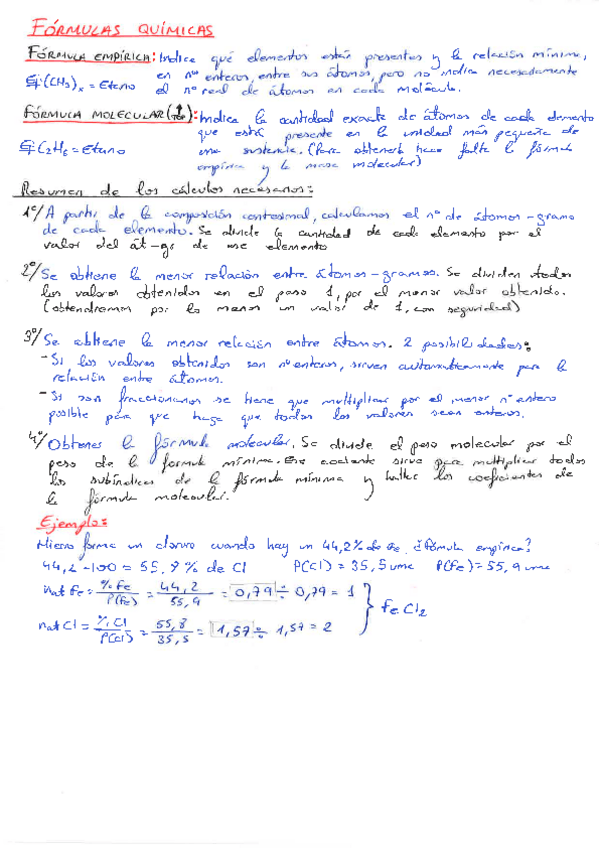 FÓRMULAS QUÍMICAS
FÓRMULA EMPÍRICA: Indica qué elementos están presentes y la relación mínima,
en nos enteros, entre sus átomos, pero no indica necesariamente
Ej: (CH3)x = Etano el nº real de átomos en cada molécula.
FÓRMULA MOLECULAR: Indica la cantidad exacta de átomos de cada elemento
que está presente en la unidad más pequeña de
Ej: C2H6 = Etano una sustancia. (Para obtenerla hace falta la fórmula
empírica y la masa molecular)
Resumen de los cálculos necesarios:
1º/ A partir de la composición centesimal, calculamos el nº de átomos-gramo
de cada elemento. Se divide la cantidad de cada elemento por el
valor del át-gr de ese elemento
2º/ Se obtiene la menor relación entre átomos-gramos. Se dividen todos
los valores obtenidos en el paso 1, por el menor valor obtenido.
(obtendremos por lo menos un valor de 1, con seguridad)
3º/ Se obtiene la menor relación entre átomos. 2 posibilidades:
- Si los valores obtenidos son nº enteros, sirven automáticamente para la
relación entre átomos.
- Si son fraccionarios se tiene que multiplicar por el menor nº entero
posible para que haga que todos los valores sean enteros.
4º/ Obtenes la fórmula molecular. Se divide el peso molecular por el
peso de la formula mínima. Ese cociente sirve para multiplicar todos
los subíndices de la fórmula mínima y hallar los coeficientes de
la fórmula molecular.
Ejemplo:
Hierro forma un cloruro cuando hay un 44,2% de Fe. ¿Fórmula empírica?
44,2 - 100 = 55,8 % de Cl P(Cl) = 35,5 umc P(Fe) = 55,9 umc
nat Fe = % Fe / P(Fe) = 44,2 / 55,9 = 0,79 ÷ 0,79 = 1
} FeCl2
nat Cl = % Cl / P(Cl) = 55,8 / 35,5 = 1,57 ÷ 1,57 = 2